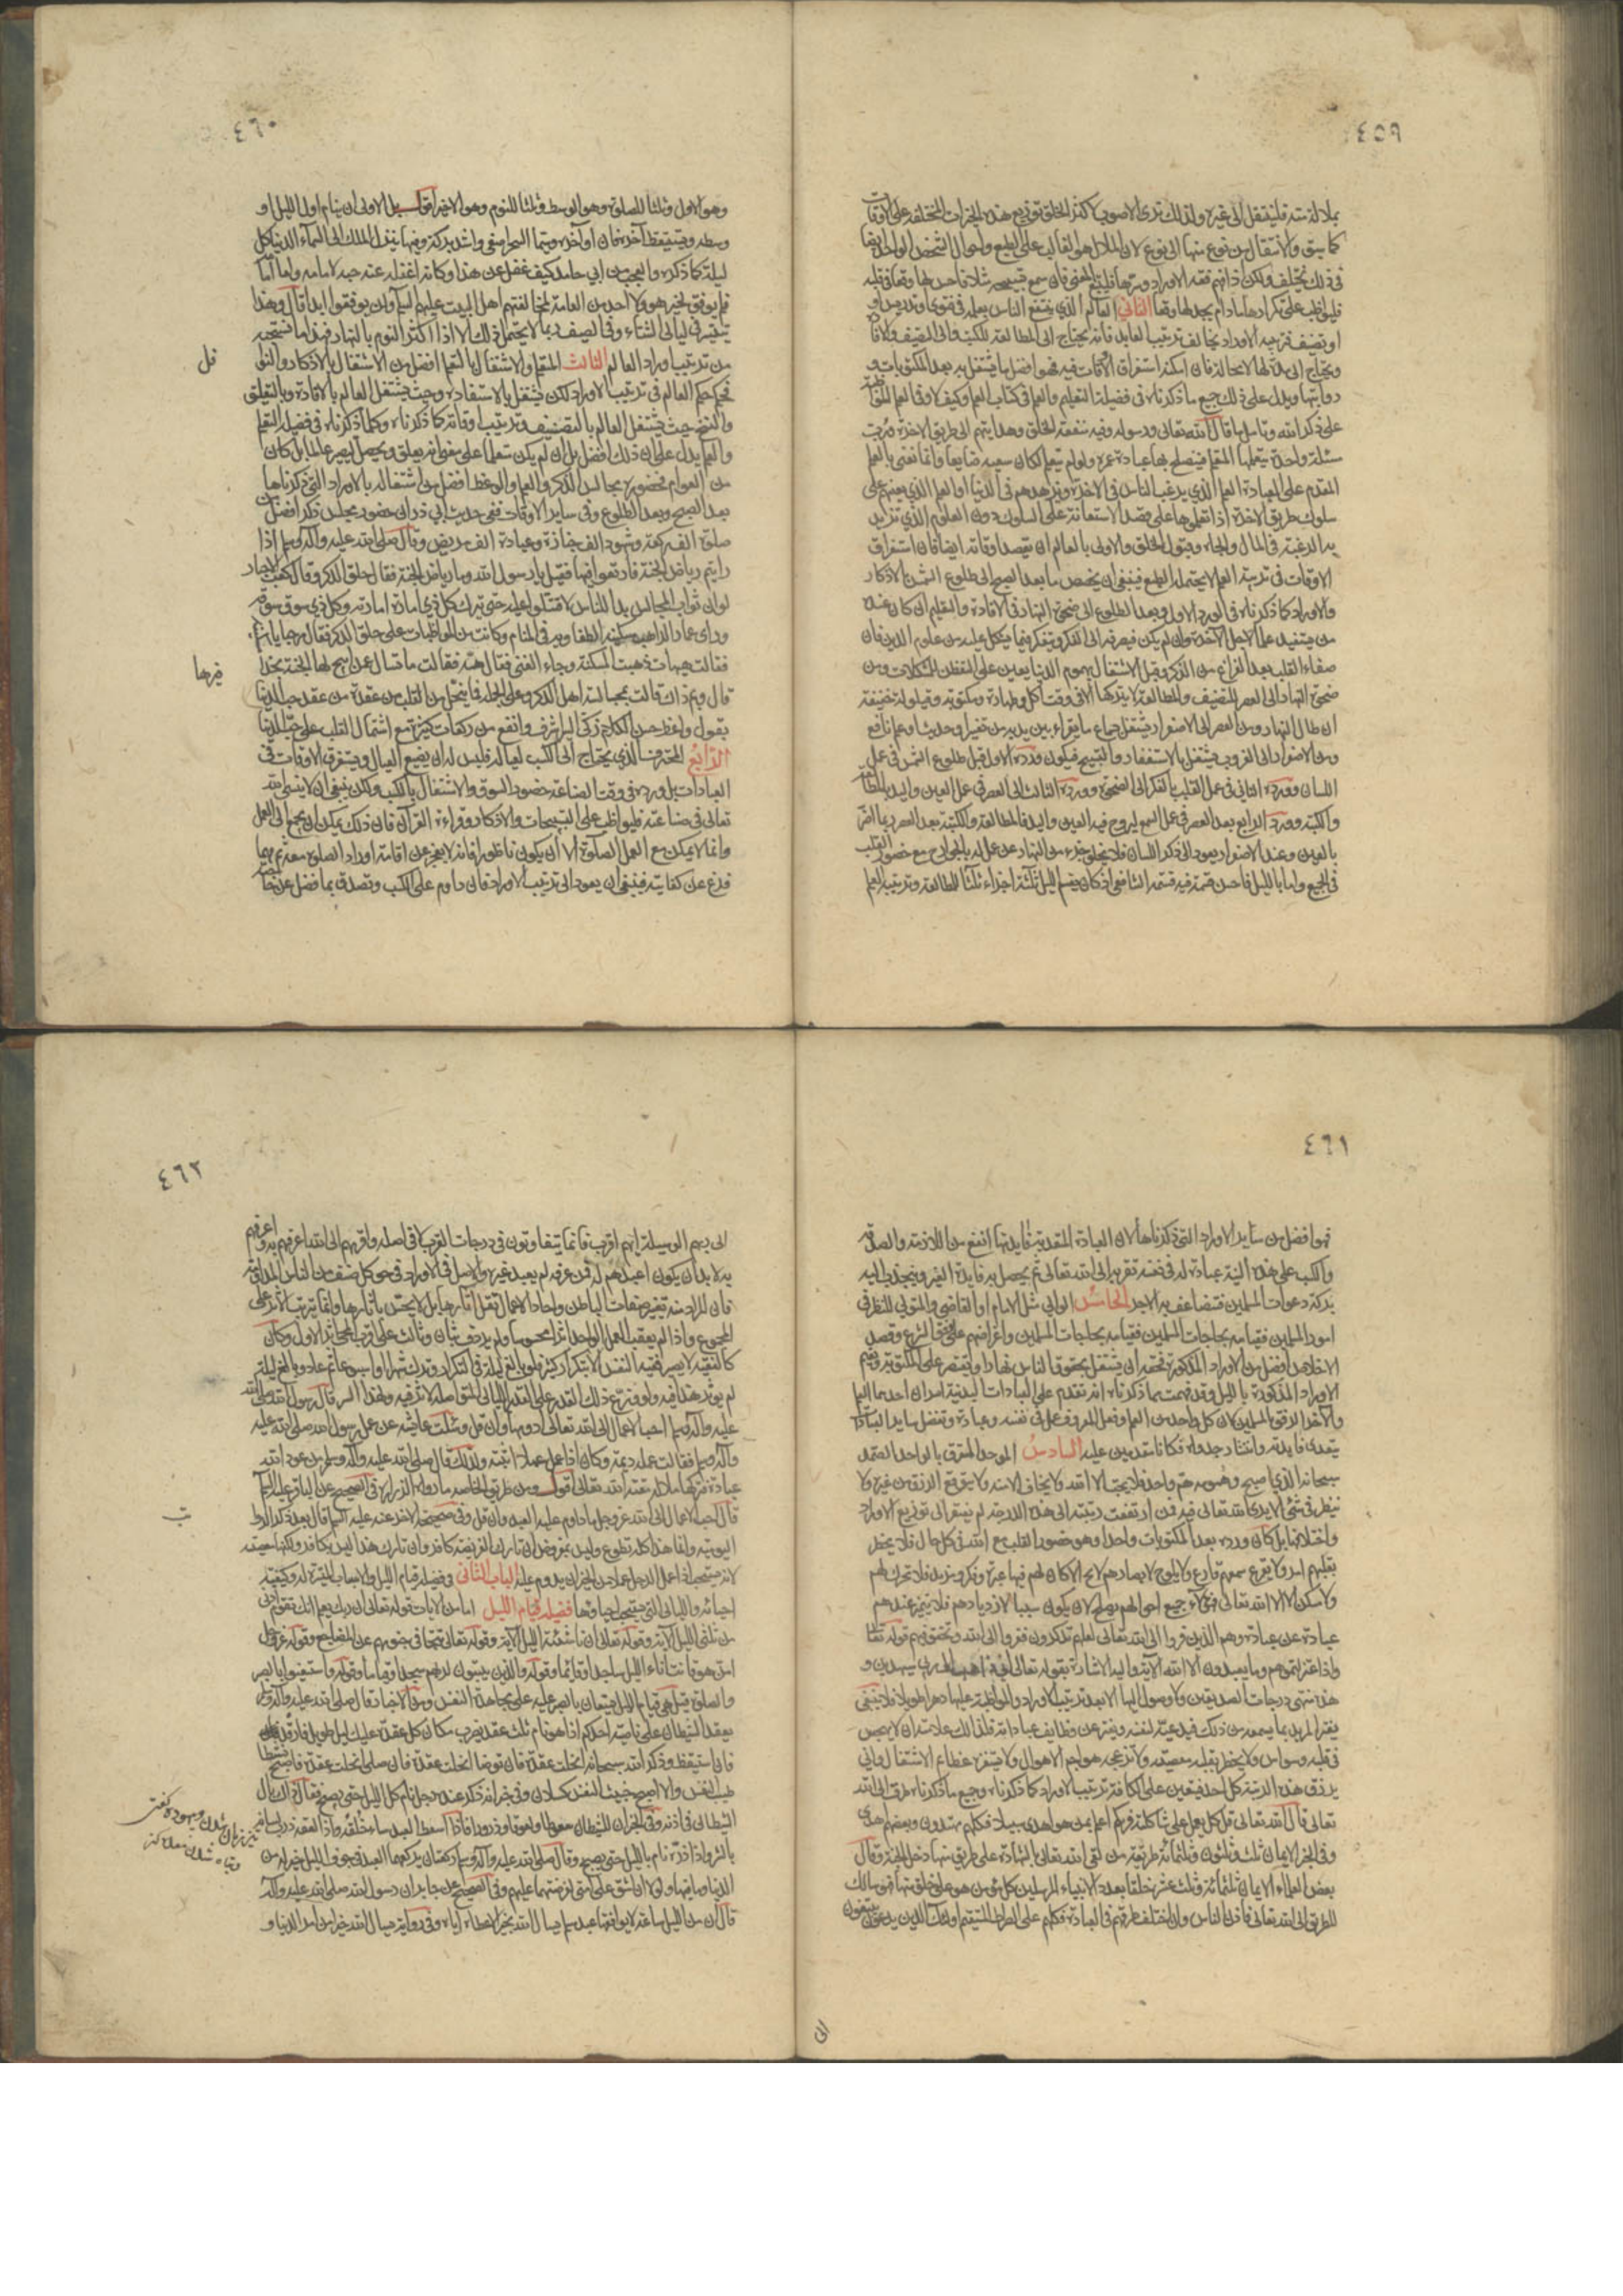 ٤٥٩
بملالة منه فلينتقل الى غيره ولذلك نرى الاصوب لاكثر الخلق توزيع هذه الخيرات المختلفة على الاوقات
كما سبق والانتقال من نوع منها الى نوع لان الملال هو الغالب على الطبع واحوال الشخص الواحد ايضا
في ذلك تختلف ولكن اذا فهم فقه الاوراد وسرها فليتبع المعنى فان سمع تسبيحة مثلا فاحس لها بوقع في قلبه
فليواظب على تكرارها مادام يجد لها وقعا الثاني العالم الذي ينتفع الناس بعلمه في فتوى او تدريس او
او تصنيف فترتيبه الاوراد يخالف ترتيب العابد فانه يحتاج الى المطالعة للكتب والى التصنيف والافادة
ويحتاج الى مدة لها لا محالة فان امكنه استغراق الاوقات فيه فهو افضل ما يشتغل به بعد المكتوبات و
رواتبها ويدل على ذلك جميع ما ذكرناه في فضيلة التعليم والعلم في كتاب العلم وكيف لا وفي العلم المواظبة
على ذكر الله وتامل ما قال الله تعالى ورسوله وفيه منفعة الخلق وهدايتهم الى طريق الاخرة فرب
مسئلة واحدة يتعلمها المتعلم فيصلح بها عبادة عمره ولو لم يتعلمها لكان سعيه ضايعا وانما نعني بالعلم
المقدم على العبادة العلم الذي يرغب الناس في الاخرة ويزهدهم في الدنيا او العلم الذي يعينهم على
سلوك طريق الاخرة اذا تعلموها على قصد الاستعانة على السلوك دون العلوم التي تزيد
به الرغبة في المال والجاه وقبول الخلق والاولى بالعالم ان يقسم اوقاته ايضا فان استغراق
الاوقات في ترتيب العلم لا يحتمله الطبع فينبغي ان يخصص ما بعد الصبح الى طلوع الشمس بالاذكار
والاوراد كما ذكرناه في الورد الاول وبعد الطلوع الى ضحوة النهار في الافادة والتعليم ان كان عنده
من يستفيد علما لاجل الاخرة وان لم يكن فيصرفه الى الفكر ويتفكر فيما يشكل عليه من علوم الدين فان
صفاء القلب بعد الفراغ من الذكر وقبل الاشتغال بهموم الدنيا يعين على التفطن للمشكلات ومن
ضحوة النهار الى العصر للتصنيف والمطالعة لا يتركها الا في وقت اكل وطهارة ومكتوبة وقيلولة خفيفة
ان طال النهار ومن العصر الى الاصفرار يشتغل بسماع ما يقرأ بين يديه من تفسير او حديث او علم نافع
ومن الاصفرار الى الغروب يشتغل بالاستغفار والتسبيح فيكون ورده الاول قبل طلوع الشمس في عمل
اللسان وورده الثاني في عمل القلب بالفكر الى الضحوة وورده الثالث الى العصر في عمل العين واليد بالمطالعة
والكتبة وورده الرابع بعد العصر في عمل السمع ليروح فيه العين واليد فالمطالعة والكتبة بعد العصر ربما اضر
بالعين وعند الاصفرار يعود الى ذكر اللسان فلا يخلو جزء من النهار عن عمل له بالجوارح مع حضور القلب
في الجميع واما الليل فاحسن قسمة فيه قسمة الشافعي اذ كان يقسم الليل ثلثة اجزاء ثلثا للمطالعة وترتيب العلم
٤٦٠
وهو الاول وثلثا للصلوة وهو الوسط وثلثا للنوم وهو الاخير اقول بل الاولى ان ينام اول الليل او
وسطه ويستيقظ آخره فان
ليلة كما ذكره والعجب من ابي حامد كيف غفل عن هذا وكانه اغفله عنه حبه لامامه
فلم يوفق لخير هو ولا احد من العامة لمخالفتهم اهل البيت عليهم السلم ولن يوفقوا ابدا قال وهذا
يتيسر في ليالي الشتاء وفي الصيف ربما لا يحتمل ذلك الا اذا اكثر النوم بالنهار فهذا ما نستحبه
من ترتيب اوراد العالم الثالث المتعلم والاشتغال بالتعلم افضل من الاشتغال بالاذكار والنوافل
فحكمه حكم العالم في ترتيب الاوراد لكن يشتغل بالاستفادة حيث يشتغل العالم بالافادة وبالتعليق
والنسخ حيث يشتغل العالم بالتصنيف وترتيب اوقاته كما ذكرناه وكلما ذكرناه في فضيلة التعلم
والعلم يدل على ان ذلك افضل بل ان لم يكن متعلما على معنى انه يعلق ويحصل ليصير عالما بل كان
من العوام فحضوره مجالس الذكر والعلم والوعظ افضل من اشتغاله بالاوراد التي ذكرناها
بعد الصبح وبعد الطلوع وفي ساير الاوقات ففي حديث ابي ذر ان حضور مجلس ذكر افضل من
صلوة الف ركعة وشهود الف جنازة وعيادة الف مريض وقال صلى الله عليه وآله وسلم اذا
رايتم رياض الجنة فارتعوا فيها فقيل يا رسول الله وما رياض الجنة فقال حلق الذكر وقال كعب الاحبار
لو ان ثواب المجالس بدا للناس لاقتتلوا عليه حتى يترك كل ذي امارة امارته وكل ذي سوق سوقه
وراى عمار الزاهد مسكينة الطفاوية في المنام وكانت من المواظبات على حلق الذكر فقال مرحبا يا مسكينة
فقالت هيهات ذهبت المسكنة وجاء الغنى فقال هيه فقالت ما تسال عمن ابيح لها الجنة بحذافيرها
قال وبم ذاك قالت بمجالسة اهل الذكر وعلى الجملة فما ينحل من القلب من عقدة من عقد حب الدنيا
بقول واعظ حسن الكلام زكي السيرة اشرف وانفع من ركعات كثيرة مع اشتمال القلب على حب الدنيا
الرابع المحترف الذي يحتاج الى الكسب لعياله فليس له ان يضيع العيال ويستغرق الاوقات في
العبادات بل ورده في وقت الصناعة حضور السوق والاشتغال بالكسب ولكن ينبغي ان لا ينسى الله
تعالى في صناعته فليواظب على التسبيحات والاذكار وقراءة القرآن فان ذلك يمكن ان يجمع الى العمل
وانما لا يمكن مع العمل الصلوة الا ان يكون ناظورا فانه لا يعجز عن اقامة اوراد الصلوة معه ثم مهما
فرغ عن كفايته فينبغي ان يعود الى ترتيب الاوراد فان داوم على الكسب وتصدق بما فضل عن حاجته
فل
فيرها
٤٦١
فهو افضل من ساير الاوراد التي ذكرناها لان العبادة المتعدية فايدتها انفع من اللازمة والصدقة
والكسب على هذه النية عبادة له في نفسه تقربه الى الله تعالى ثم يحصل به فايدة الغير وينجذب اليه
بركة دعوات المسلمين فيتضاعف به الاجر الخامس الوالي مثل الامام او القاضي والمتولي للنظر في
امور المسلمين فقيامه بحاجات المسلمين واغراضهم على وفق الشرع وقصد
الاخلاص افضل من الاوراد المذكورة فحقه ان يشتغل بحقوق الناس نهارا ويقتصر على المكتوبة ويقيم
الاوراد المذكورة بالليل وقد فهمت بما ذكرناه انه تقدم على العبادات البدنية امران احدهما العلم
والآخر الرفق بالمسلمين لان كل واحد من العلم وفعل المعروف عمل في نفسه وعبادة وتفضل ساير العبادات
بتعدي فايدته وانتشار جدواه فكانا مقدمين عليه السادس الموحد المستغرق بالواحد الصمد
سبحانه الذي اصبح وهمومه هم واحد فلا يحب الا الله ولا يخاف الا منه ولا يتوقع الرزق من غيره ولا
ينظر في شئ الا يرى الله تعالى فيه فمن ارتفعت رتبته الى هذه الدرجة لم يفتقر الى توزيع الاوراد
واختلافها بل كان ورده بعد المكتوبات واحدا وهو حضور القلب مع الله في كل حال فلا يخطر
بقلبهم امر ولا يقرع سمعهم قارع ولا يلوح لابصارهم لايح الا كان لهم فيه عبرة وفكر ومزيد فلا محرك لهم
ولا مسكن الا الله تعالى فهؤلاء جميع احوالهم يصلح لان يكون سببا لازديادهم فلا يتميز عندهم
عبادة عن عبادة وهم الذين فروا الى الله تعالى لعلهم تذكرون ففروا الى الله وتحقق فيهم قوله تعالى
واذا اعتزلتموهم وما يعبدون الا الله الآية واليه الاشارة بقوله تعالى اني ذاهب الى ربي سيهدين و
هذه منتهى درجات الصديقين ولا وصول اليها الا بعد ترتيب الاوراد والمواظبة عليها دهرا طويلا فلا ينبغي
يغتر المريد بما سمعه من ذلك فيدعيه لنفسه ويفتر عن وظايف عباداته فذلك علامته ان لا يهجس
في قلبه وسواس ولا يخطر بقلبه معصية ولا تزعجه هواجم الاهوال ولا يستفزه عظائم الاشغال وانى
يرزق هذه الرتبة كل احد فيتعين على الكافة ترتيب الاوراد كما ذكرناه وجميع ما ذكرناه طرق الى الله
تعالى قال الله تعالى قل كل يعمل على شاكلته فربكم اعلم بمن هو اهدى سبيلا فكلهم مهتدون وبعضهم اهدى
وفي الخبر الايمان ثلث وثلثون وثلثمائة طريقة من لقي الله تعالى بالشهادة على طريق منها دخل الجنة وقال
بعض العلماء الايمان ثلثمائة وثلث عشر خلقا بعدد الانبياء المرسلين كل مؤمن هو على خلق منها فهو سالك
للطريق الى الله تعالى فاذن الناس وان اختلفت طرقهم في العبادة فكلهم على الصراط المستقيم اولئك الذين يدعون يبتغون
الى
٤٦٢
الى ربهم الوسيلة ايهم اقرب فانما يتفاوتون في درجات القرب لا في اصله واقربهم الى الله اعرفهم به واعرفهم
به لا بد ان يكون اعبدهم له فمن عرفه لم يعبد غيره والاصل في الاوراد في حق كل صنف من الناس المداومة
فان المراد منه تغيير صفات الباطن واحاد الاعمال تقل آثارها بل لا يحس بآثارها وانما يترتب الاثر على
المجموع واذا لم يعقب العمل الواحد اثرا محسوسا ولم يردف بثان وثالث على القرب انمحى الاثر الاول وكان
كالفقيه
لم يؤثر هذا فيه ولو وزع ذلك القدر على الليالي المتواصلة لاثر فيه ولهذا السر قال رسول الله صلى الله
عليه وآله وسلم احب الاعمال الى الله تعالى ادومها وان قل وسئلت عايشة عن عمل رسول الله صلى الله عليه
وآله وسلم فقالت عمله ديمة وكان اذا عمل عملا اثبته ولذلك قال صلى الله عليه وآله وسلم من عوده الله
عبادة فتركها ملالة مقته الله تعالى اقول ومن طريق الخاصة ما رواه زرارة في الصحيح عن الباقر عليه السلم
قال احب الاعمال الى الله عز وجل ما داوم عليه العبد وان قل وفي صحيحته الاخرى عنه عليه السلم قال بعد ذكر الرواتب
اليومية وانما هذا كله تطوع وليس بمفروض ان تارك الفريضة كافر وان تارك هذا ليس بكافر ولكنها معصية
لانه يستحب اذا عمل الرجل عملا من الخير ان يدوم عليه الباب الثاني في فضيلة قيام الليل والاسباب الميسرة له وكيفية
احيائه والليالي التي يستحب احياؤها فضيلة قيام الليل اما من الايات فقوله تعالى ان ربك يعلم انك تقوم ادنى
من ثلثي الليل الآية وقوله تعالى ان ناشئة الليل الآية وقوله تعالى تتجافى جنوبهم عن المضاجع وقوله عز وجل
امن هو قانت آناء الليل ساجدا وقائما وقوله والذين يبيتون لربهم سجدا وقياما وقوله واستعينوا بالصبر
والصلوة قيل هي قيام الليل يستعان بالصبر عليه على مجاهدة النفس ومن الاخبار قال صلى الله عليه وآله وسلم
يعقد الشيطان على قافية احدكم اذا هو نام ثلث عقد يضرب مكان كل عقدة عليك ليل طويل فارقد
فان استيقظ وذكر الله سبحانه انحلت عقدة فان توضا انحلت عقدة فان صلى انحلت عقدة فاصبح نشيطا
طيب النفس والا اصبح خبيث النفس كسلان وفي خبر انه ذكر عنده رجل نام كل الليل حتى يصبح فقال ذاك بال
الشيطان في اذنه وفي الخبر ان للشيطان سعوطا ولعوقا وذرورا فاذا اسعط العبد ساء خلقه واذا العقه ذرب لسانه
بالشر واذا ذره نام بالليل حتى يصبح وقال صلى الله عليه وآله وسلم ركعتان يركعهما العبد في جوف الليل خير له من
الدنيا وما فيها ولولا ان اشق على امتي لفرضتهما عليهم وفي الصحيح عن جابر ان رسول الله صلى الله عليه وآله
قال ان من الليل ساعة لا يوافقها عبد مسلم يسال الله بخير الا اعطاه اياه وفي رواية يسال الله خيرا من امر الدنيا و